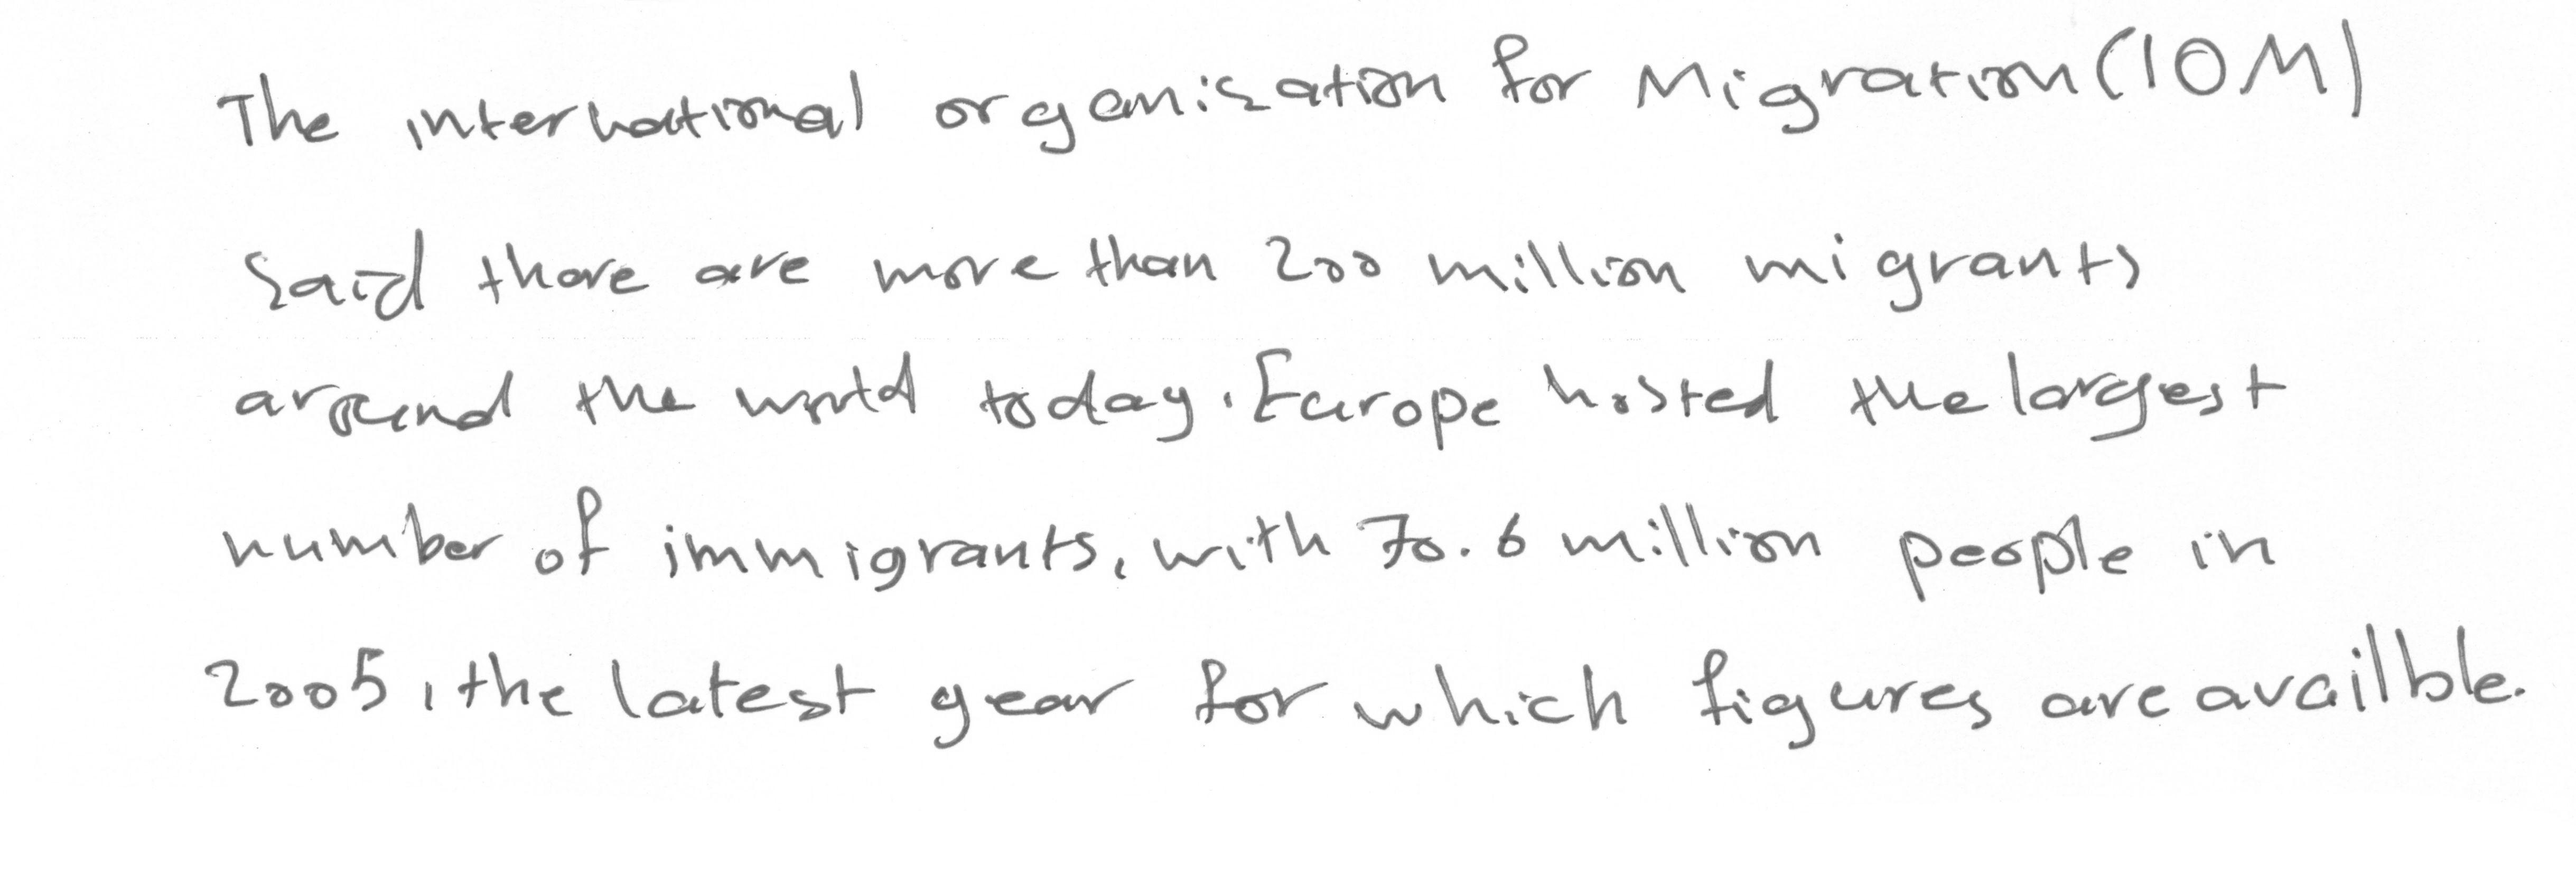 The international organisation for Migration (IOM)
said there are more than 200 million migrants
around the world today. Europe hosted the largest
number of immigrants, with 70.6 million people in
2005, the latest year for which figures are availble.